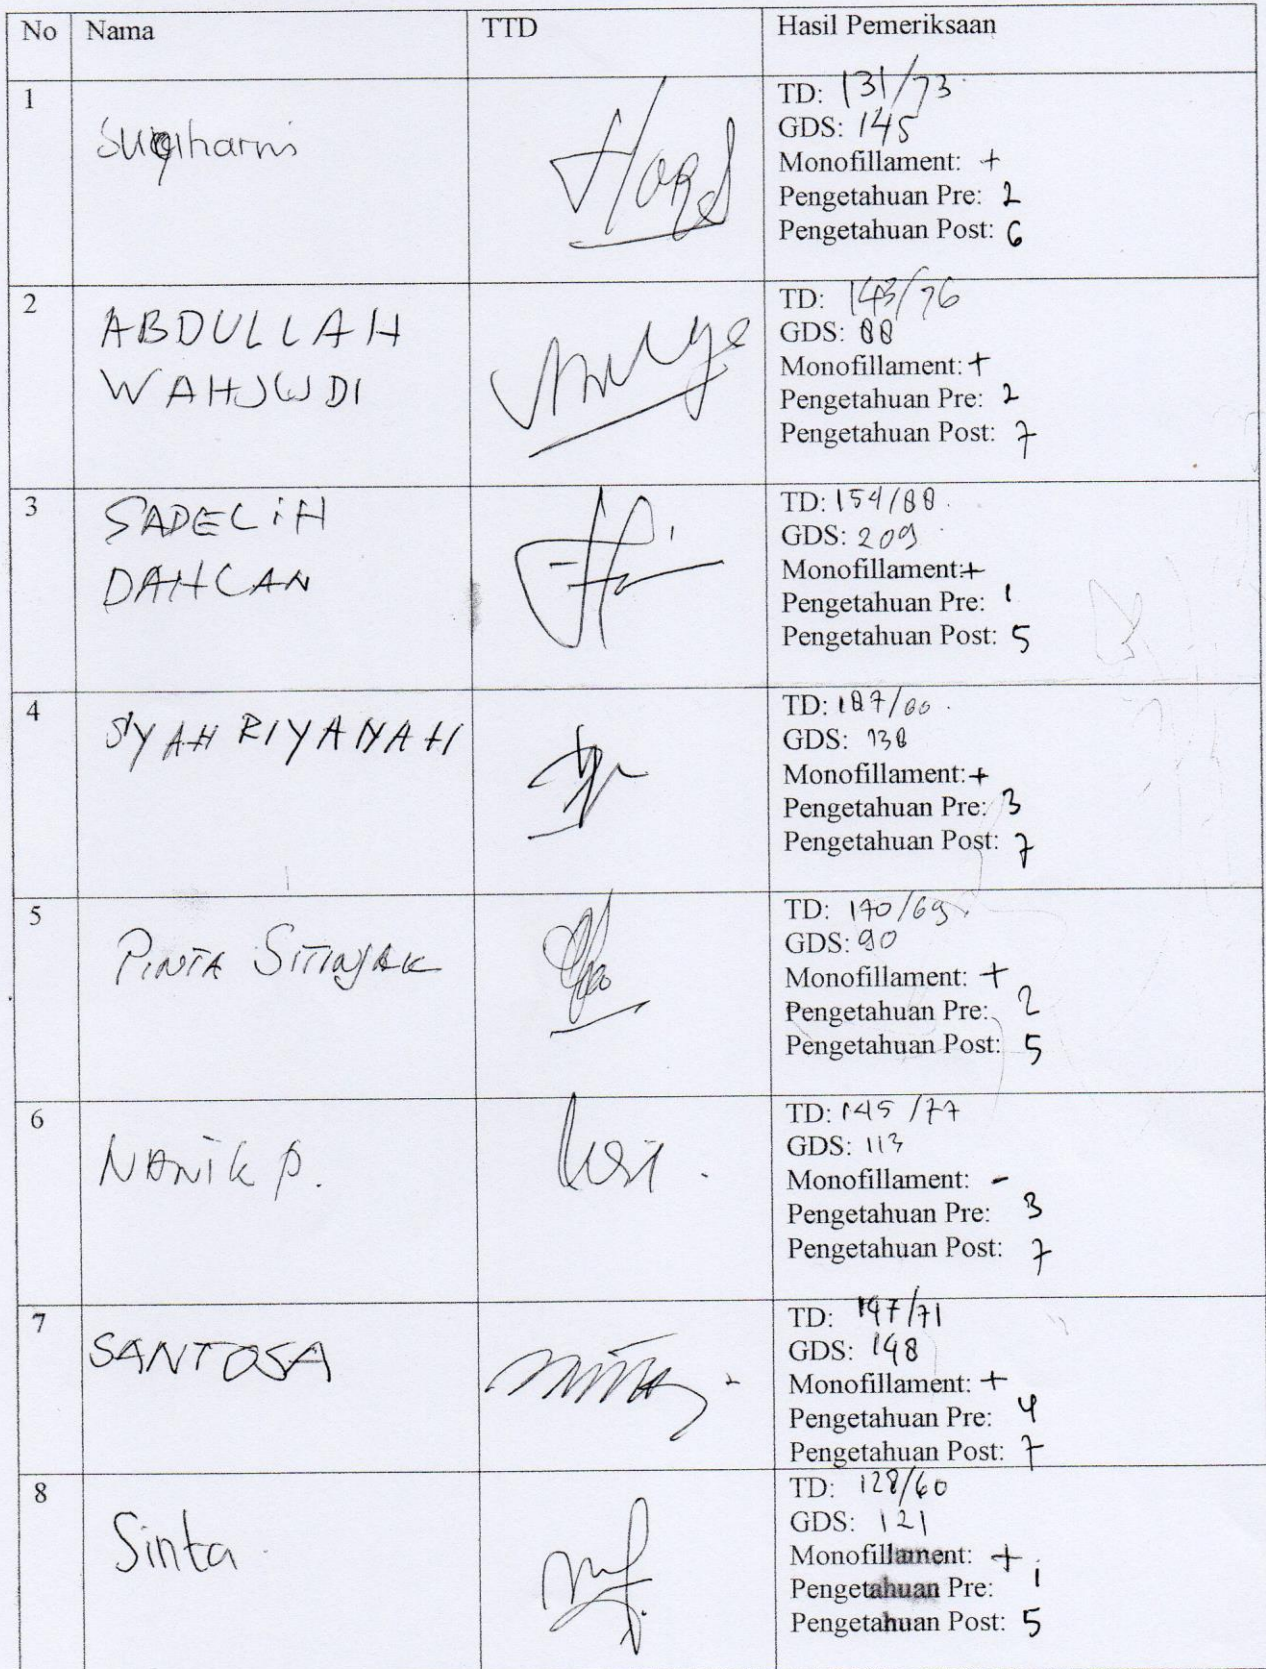 No Nama TTD Hasil Pemeriksaan
1 Sugiharni
TD: 131/73
GDS: 145
Monofillament: +
Pengetahuan Pre: 2
Pengetahuan Post: 6
2 ABDULLAH
WAHJUDI
TD: 143/76
GDS: 88
Monofillament: +
Pengetahuan Pre: 2
Pengetahuan Post: 7
3 SADELiH
DAHLAN
TD: 154/88
GDS: 209
Monofillament: +
Pengetahuan Pre: 1
Pengetahuan Post: 5
4 SYAHRIYANAH
TD: 187/80
GDS: 138
Monofillament: +
Pengetahuan Pre: 3
Pengetahuan Post: 7
5 PINTA SITINJAK
TD: 170/69
GDS: 90
Monofillament: +
Pengetahuan Pre: 2
Pengetahuan Post: 5
6 NANIK P.
TD: 145/77
GDS: 113
Monofillament: -
Pengetahuan Pre: 3
Pengetahuan Post: 7
7 SANTOSA
TD: 147/71
GDS: 148
Monofillament: +
Pengetahuan Pre: 4
Pengetahuan Post: 7
8 Sinta
TD: 128/60
GDS: 121
Monofillament: +
Pengetahuan Pre: 1
Pengetahuan Post: 5